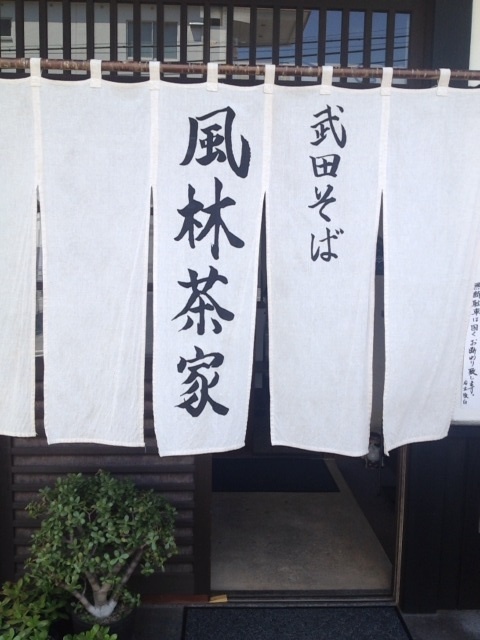 武田そば
風林茶家
無断駐車は固くお断わり致します。